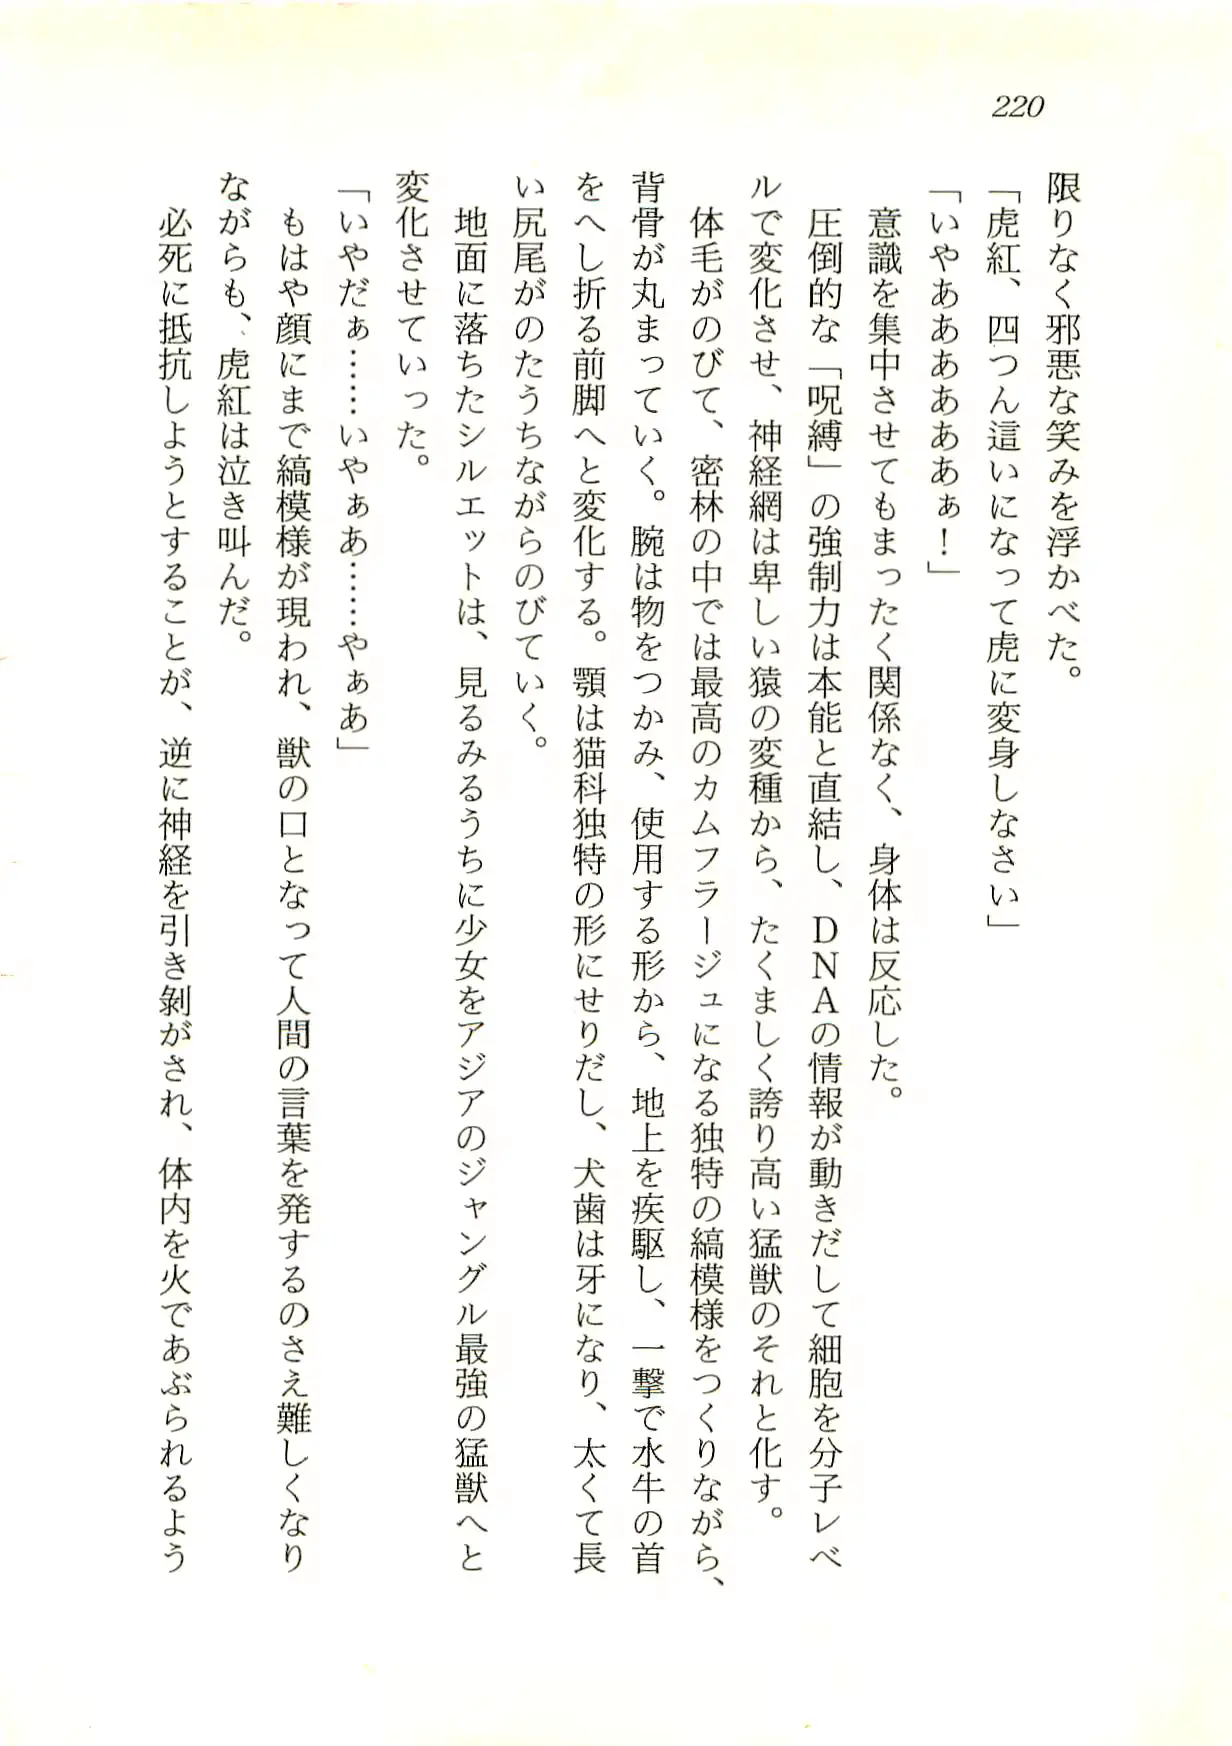 220
限りなく邪悪な笑みを浮かべた。
「虎紅、四つん這いになって虎に変身しなさい」
「いやあああああぁ！」
意識を集中させてもまったく関係なく、身体は反応した。
圧倒的な「呪縛」の強制力は本能と直結し、ＤＮＡの情報が動きだして細胞を分子レベ
ルで変化させ、神経網は卑しい猿の変種から、たくましく誇り高い猛獣のそれと化す。
体毛がのびて、密林の中では最高のカムフラージュになる独特の縞模様をつくりながら、
背骨が丸まっていく。腕は物をつかみ、使用する形から、地上を疾駆し、一撃で水牛の首
をへし折る前脚へと変化する。顎は猫科独特の形にせりだし、犬歯は牙になり、太くて長
い尻尾がのたうちながらのびていく。
地面に落ちたシルエットは、見るみるうちに少女をアジアのジャングル最強の猛獣へと
変化させていった。
「いやだぁ……いやぁあ……やぁあ」
もはや顔にまで縞模様が現われ、獣の口となって人間の言葉を発するのさえ難しくなり
ながらも、虎紅は泣き叫んだ。
必死に抵抗しようとすることが、逆に神経を引き剝がされ、体内を火であぶられるよう